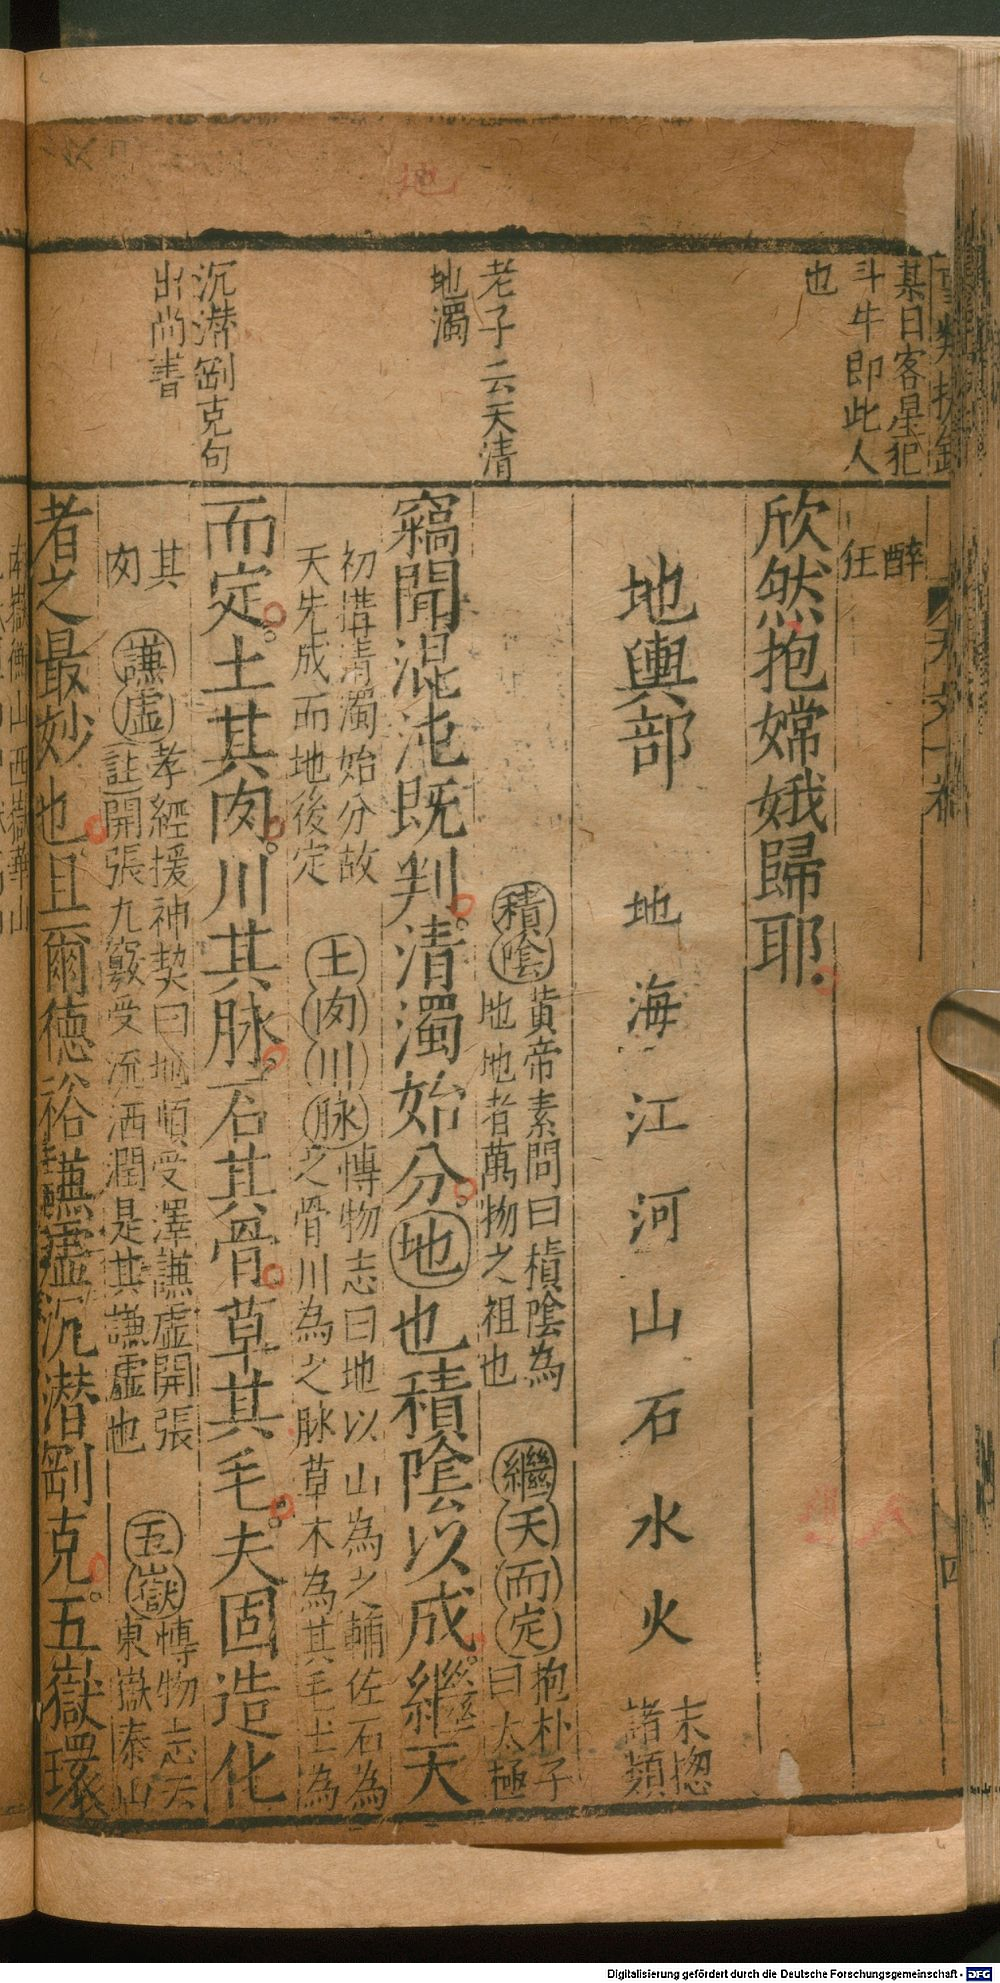 地
某日客星犯
斗牛即此人
也
老子云天清
地濁
沉潜剛克句
出尚書
四
醉
狂
欣然抱嫦娥歸耶
地輿部 地 海 江 河 山 石 水 火 末揔
諸類
積陰 黄帝素問曰積陰為
地地者萬物之祖也
繼天而定 抱朴子
曰太極
竊聞混沌既判清濁始分地也積陰以成繼天
初搆清濁始分故
天先成而地後定
土肉川脉 博物志曰地以山為之輔佐石為
之骨川為之脉草木為其毛土為
而定土其肉川其脉石其骨草其毛夫固造化
其
肉
謙虚 孝經援神契曰地順受澤謙虚開張
註開張九竅受流洒潤是其謙虚也
五嶽 博物志云
東嶽泰山
者之最妙也且爾德裕謙虚沉潜剛克五嶽環
Digitalisierung gefördert durch die Deutsche Forschungsgemeinschaft - DFG